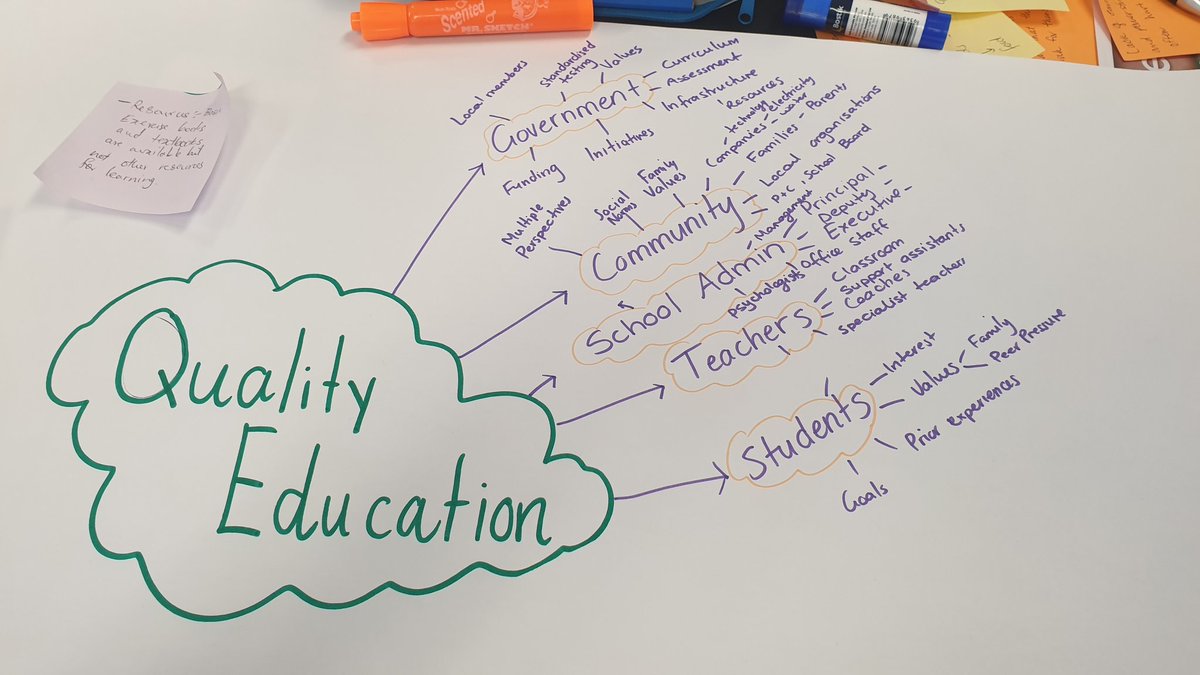 Scented
MR. SKETCH
Bostik
- Resources :-
Exercise books
and textbooks
are available but
not other resources
for learning
Quality
Education
Government
Local members
Standardised
testing
Values
Curriculum
Assessment
Infrastructure
Initiatives
Funding
Community
Multiple
Perspectives
Social
Norms
Family
Values
Companies
Resources
technology
electricity
water
Families - Parents
Local organisations
P+C, School Board
School Admin
Management
Principal
Deputy
Executive
Office Staff
psychologists
Teachers
Classroom
Support assistants
Coaches
specialist teachers
Students
Interest
Values
Family
Peer Pressure
Prior experiences
Goals